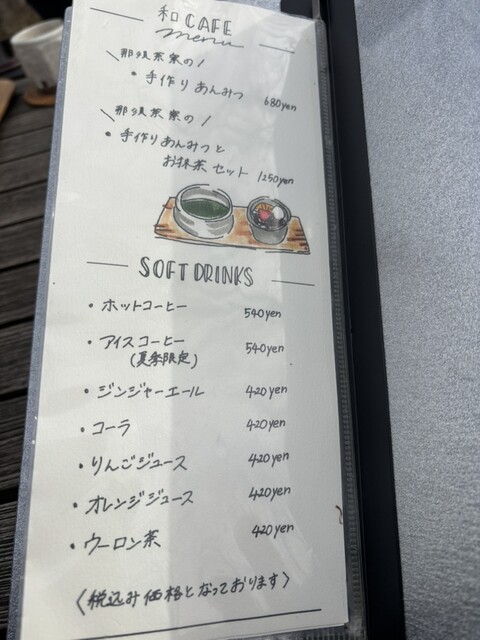 和 CAFE
menu
\ 那須茶寮の /
• 手作り あんみつ 680yen
\ 那須茶寮の /
• 手作りあんみつと
お抹茶 セット 1250yen
SOFT DRINKS
• ホットコーヒー 540yen
• アイスコーヒー 540yen
(夏季限定)
• ジンジャーエール 420yen
• コーラ 420yen
• りんごジュース 420yen
• オレンジジュース 420yen
• ウーロン茶 420yen
〈税込み価格となっております〉